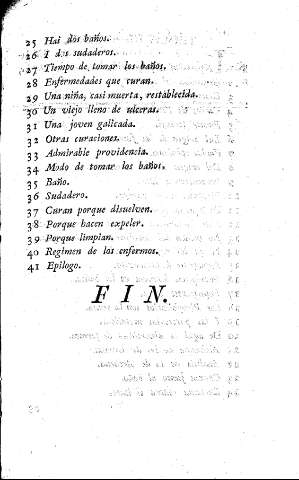 25 Hai dos baños.
26 I dos sudaderos.
27 Tiempo de tomar los baños.
28 Enfermedades que curan.
29 Una niña, casi muerta, restablecida.
30 Un viejo lleno de ulceras.
31 Una joven galicada.
32 Otras curaciones.
33 Admirable providencia.
34 Modo de tomar los baños.
35 Baño.
36 Sudadero.
37 Curan porque disuelven.
38 Porque hacen expeler.
39 Porque limpian.
40 Regimen de los enfermos.
41 Epilogo.
FIN.